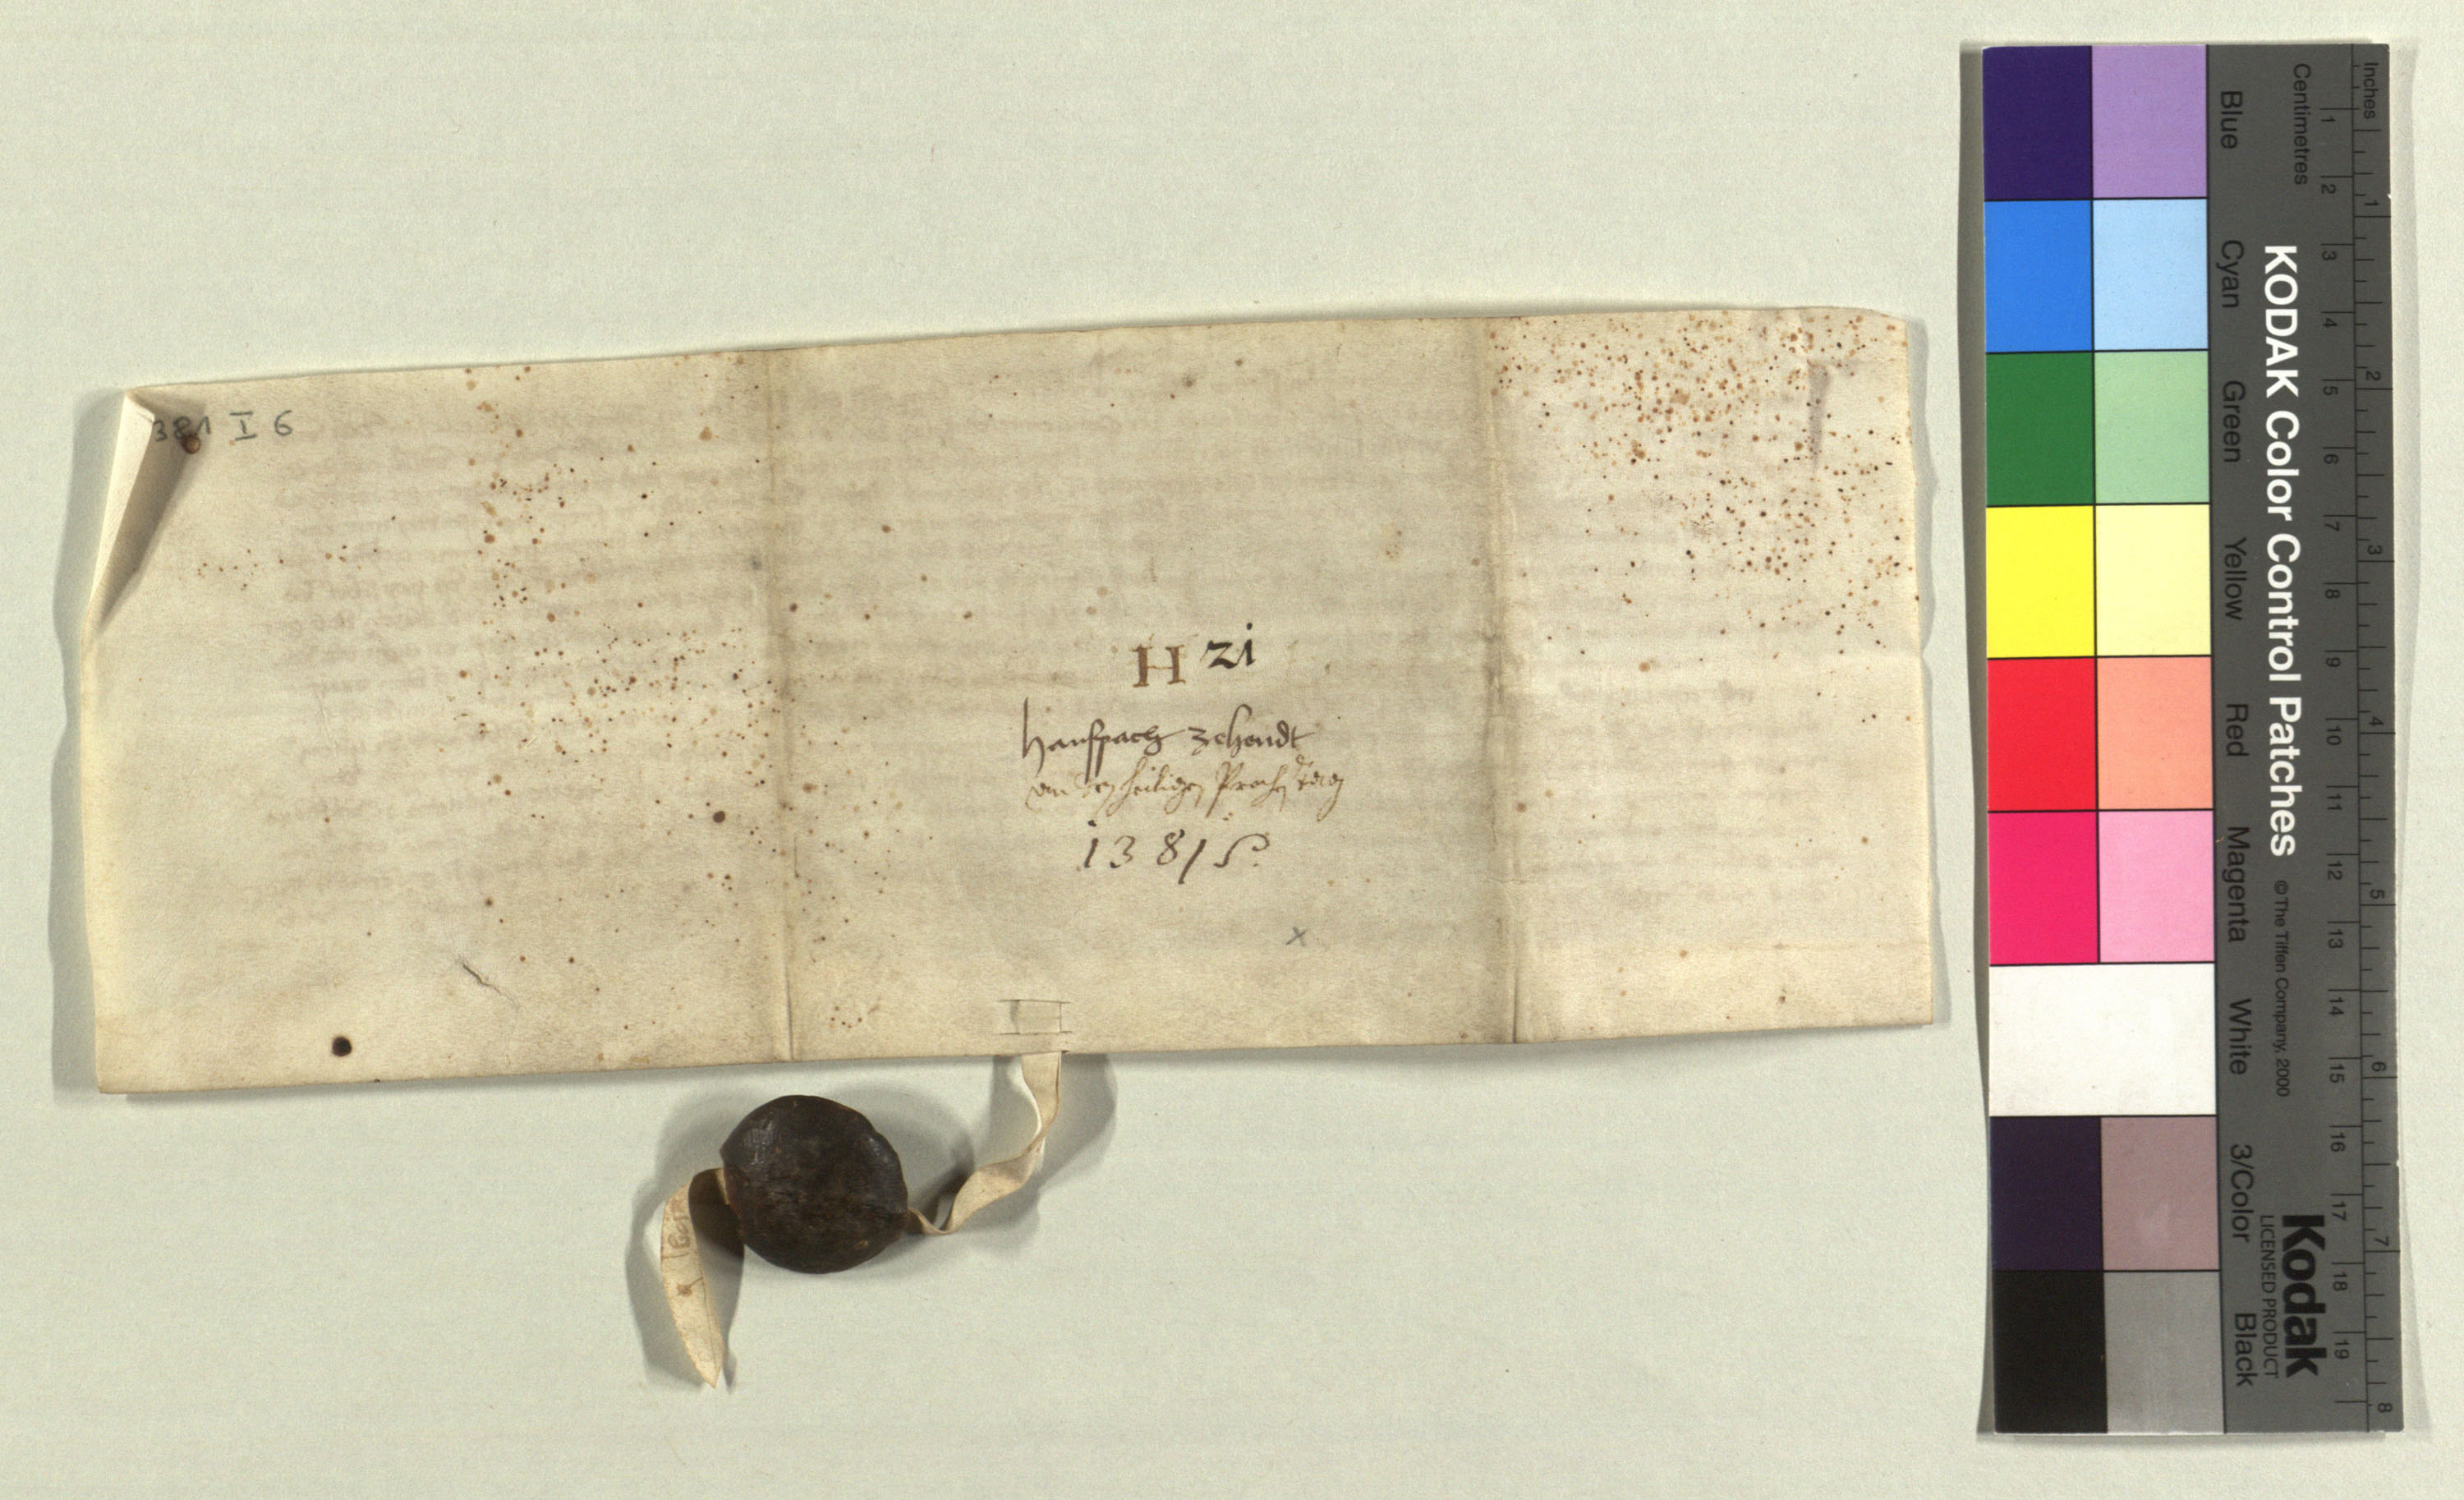 381 I 6
H 21
Hanspach zehendt
an dem heiligen Prech tag
1381 S.
x
Inches
Centimetres
1 2 3 4 5 6 7 8 9 10 11 12 13 14 15 16 17 18 19
1 2 3 4 5 6 7 8
KODAK Color Control Patches © The Tiffen Company, 2000
Kodak
LICENSED PRODUCT
Blue Cyan Green Yellow Red Magenta White 3/Color Black